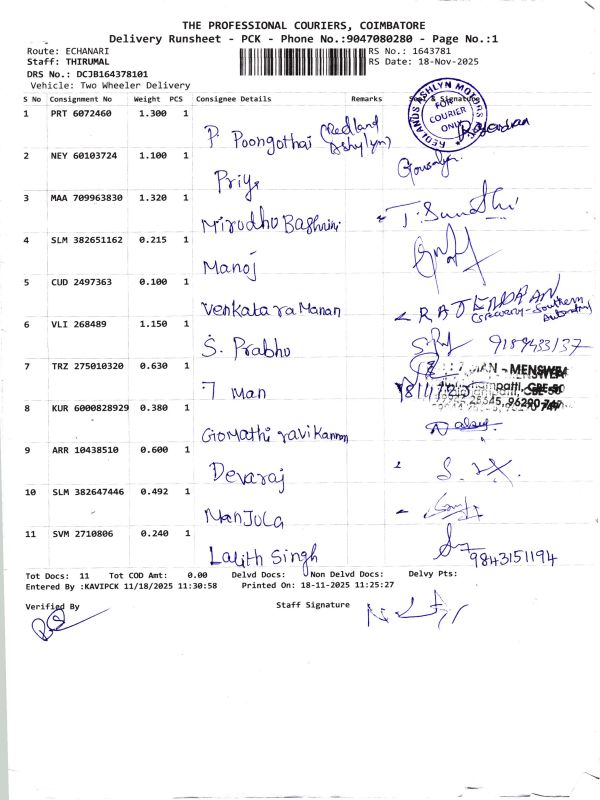 THE PROFESSIONAL COURIERS, COIMBATORE
Delivery Runsheet - PCK - Phone No.:9047080280 - Page No.:1
Route: ECHANARI RS No.: 1643781
Staff: THIRUMAL RS Date: 18-Nov-2025
DRS No.: DCJB164378101
Vehicle: Two Wheeler Delivery
S No Consignment No Weight PCS Consignee Details Remarks
1 PRT 6072460 1.300 1
P. Poongothai (Redland Ashylyn)
REDLANDS ASHLYN MOTORS
FOR COURIER ONLY
2 NEY 60103724 1.100 1
Priya
3 MAA 709963830 1.320 1
Mirudhu Bashini
4 SLM 382651162 0.215 1
Manoj
5 CUD 2497363 0.100 1
Venkata ra Manan RAJENDRAN
6 VLI 268489 1.150 1
S. Prabhu
7 TRZ 275010320 0.630 1
7 Man
- MENSWEAR
8 KUR 6000828929 0.380 1
Gomathi ravi Kannan
9 ARR 10438510 0.600 1
Devaraj
10 SLM 382647446 0.492 1
ManJula
11 SVM 2710806 0.240 1
Lalith Singh 9843151194
Tot Docs: 11 Tot COD Amt: 0.00 Delvd Docs: Non Delvd Docs: Delvy Pts:
Entered By :KAVIPCK 11/18/2025 11:30:58 Printed On: 18-11-2025 11:25:27
Verified By Staff Signature